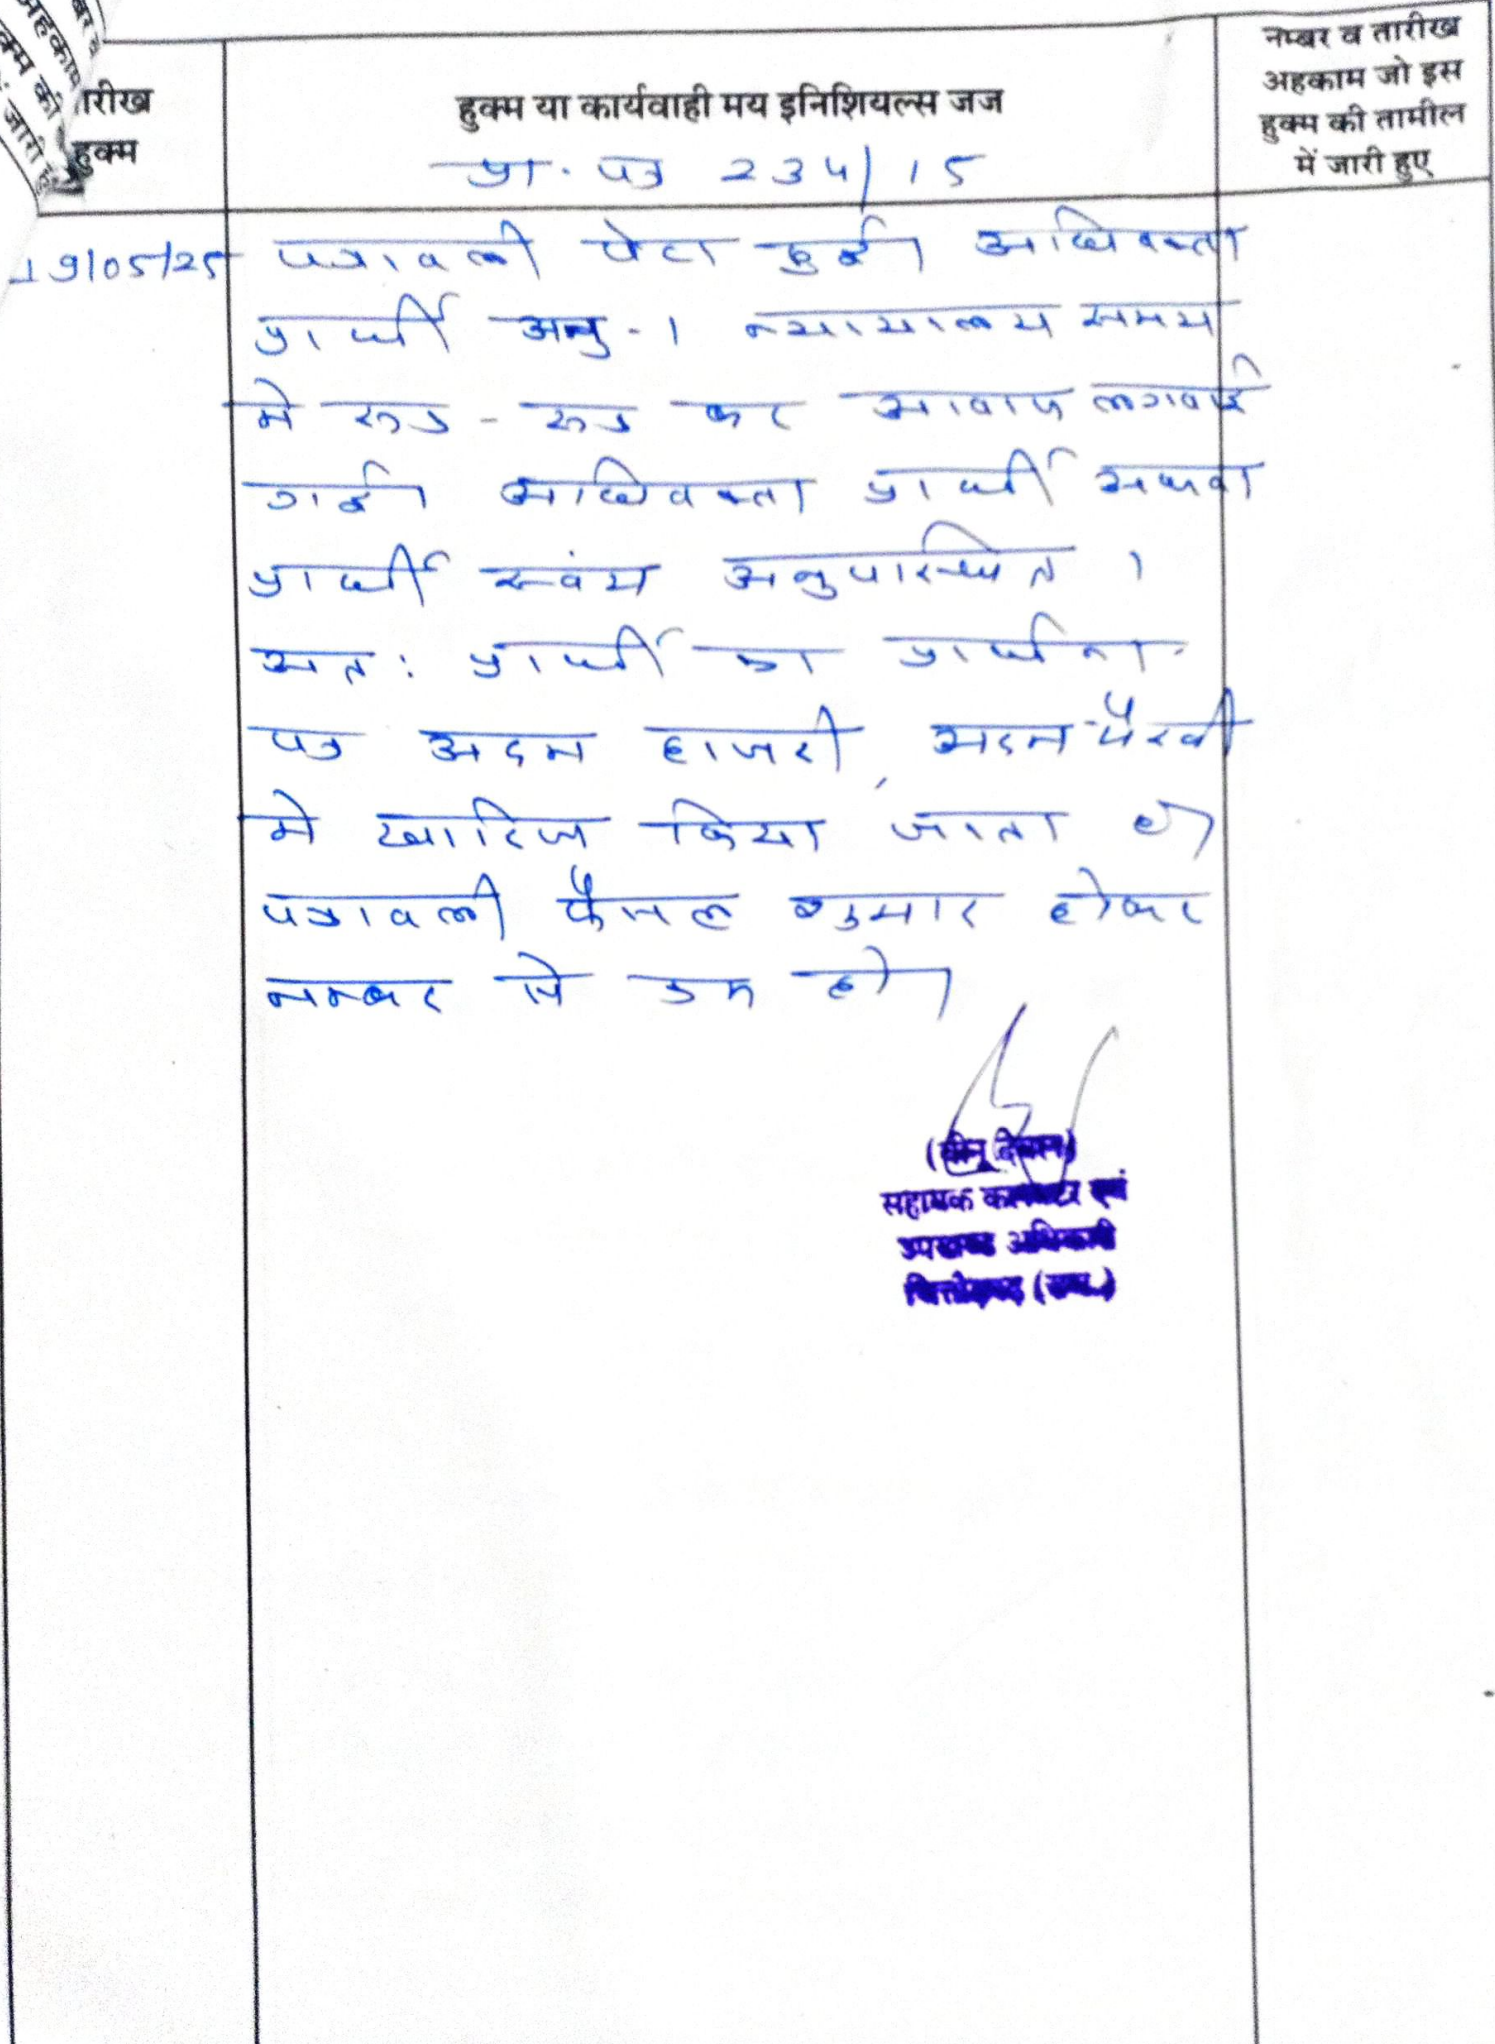 तारीख
हुक्म
हुक्म या कार्यवाही मय इनिशियल्स जज
नम्बर व तारीख
अहकाम जो इस
हुक्म की तामील
में जारी हुए
प्रा. पत्र 234/15
19/05/25 पत्रावली पेश हुई। अधिवक्ता
प्रार्थी अनु-। न्यायालय समय
मे रूक-रूक कर आवाज लगवाई
गई। अधिवक्ता प्रार्थी अथवा
प्रार्थी स्वंय अनुपस्थित ।
अत: प्रार्थी का प्रार्थना-
पत्र अदम हाजरी, अदम-पैरवी
मे खारिज किया जाता है।
पत्रावली फैसल शुमार होकर
नम्बर से कम हो।
सहायक कलक्टर एवं
उपखण्ड अधिकारी
चित्तौड़गढ़ (राज.)